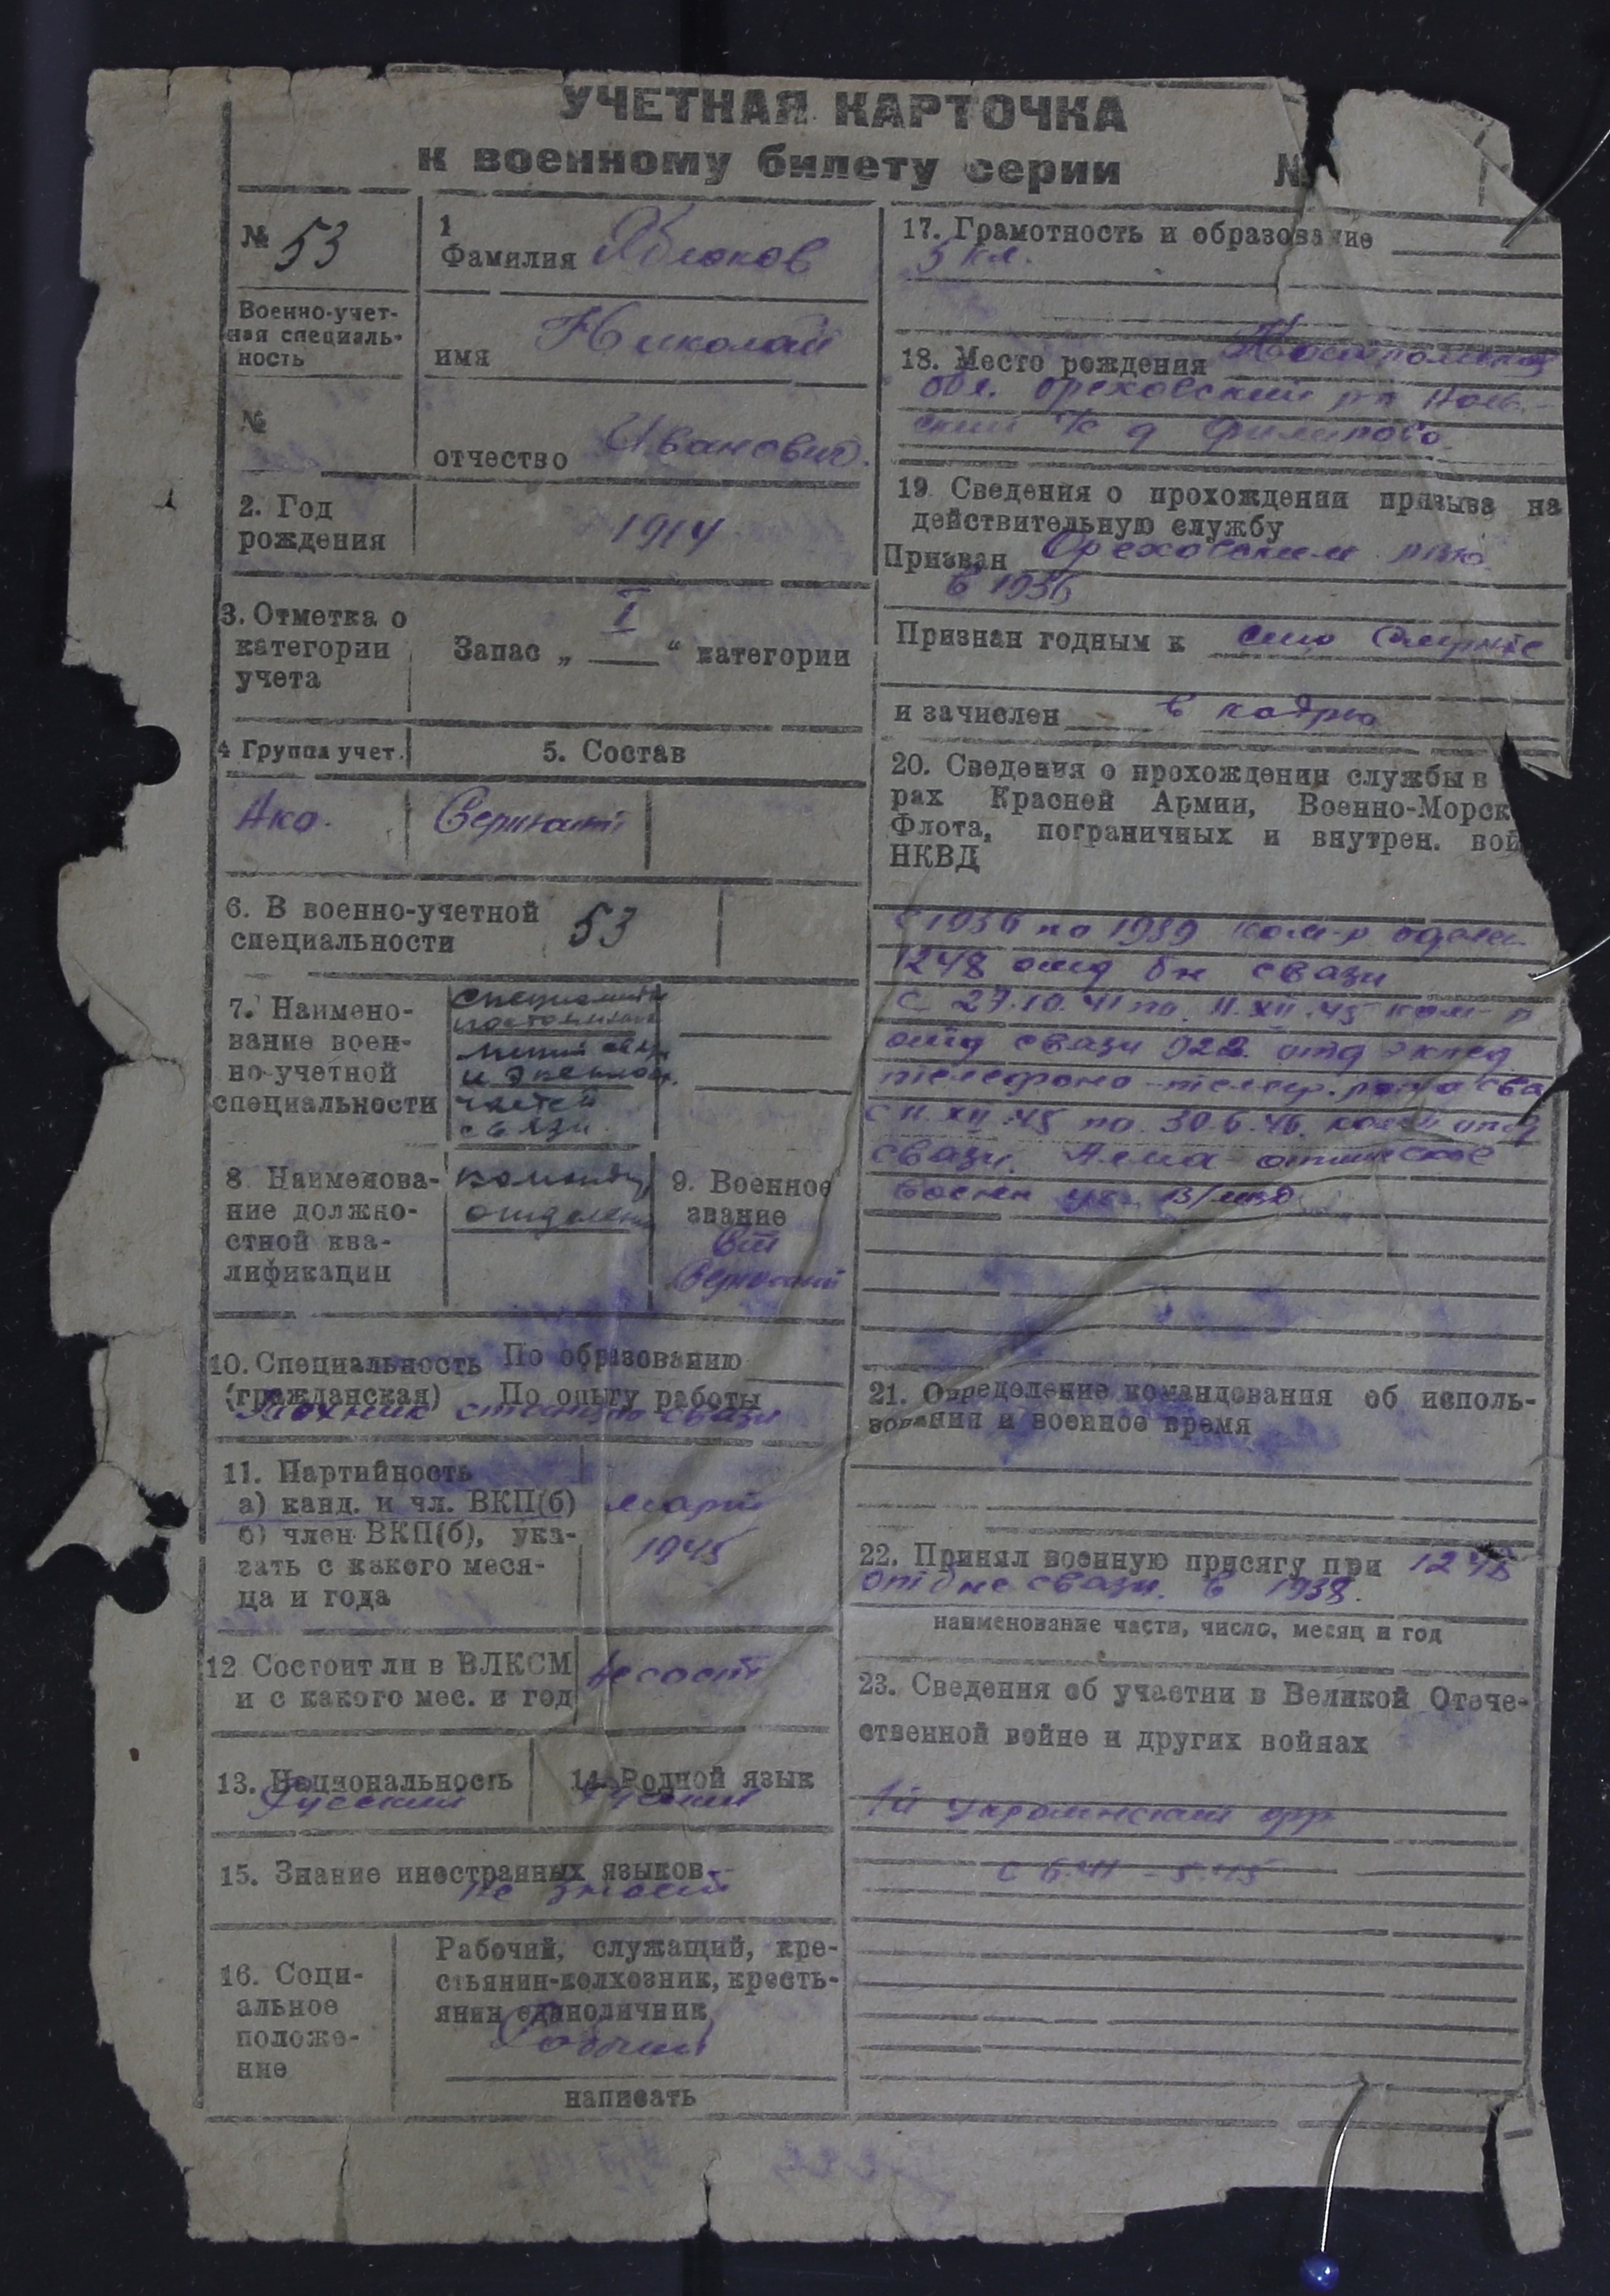 УЧЕТНАЯ КАРТОЧКА
к военному билету серии №
№ 53
Военно-учет-
ная специаль-
ность
№
1
Фамилия Яблоков
имя Николай
отчество Иванович
2. Год
рождения
1914
3. Отметка о
категории
учета
Запас „ I “ категории
4 Группа учет.
5. Состав
Сержант
6. В военно-учетной
специальности
53
7. Наимено-
вание воен-
но-учетной
специальности
линий
и
частей
связи.
8 Наименова-
ние должно-
стной ква-
лификации
9. Военное
звание
Ст
Сержант
10. Специальность По образованию
(гражданская) По опыту работы
Техник связи
11. Партийность
а) канд. и чл. ВКП(б)
б) член ВКП(б), ука-
зать с какого меся-
ца и года
март
1945
12 Состоит ли в ВЛКСМ
и с какого мес. и год
не сост
13. Национальность
Русский
14. Родной язык
Русский
15. Знание иностранных языков
не знает
16. Соци-
альное
положе-
ние
Рабочий, служащий, кре-
стьянин-колхозник, кресть-
янин единоличник
Рабочий
написать
17. Грамотность и образование
5 кл.
18. Место рождения
обл. Ореховский
с/с д Филипово
19 Сведения о прохождении призыва на
действительную службу
Призван Ореховским
в 1936
Признан годным к службе
и зачислен в кадры
20. Сведения о прохождении службы в
рах Красной Армии, Военно-Морск
Флота, пограничных и внутрен. вой
НКВД
с 1936 по 1939 ком-р отделен
1248 отд бн связи
с 27.10.41 по 11.XII.45 ком-р
отд связи 922 отд
телефоно-телегр. рота свя
с 11.XII.45 по 30.6.46. отд
связи. Алма-атинское
воен
21. Определение командования об исполь-
зовании и военное время
22. Принял военную присягу при 1248
отд бне связи. в 1938.
наименование части, число, месяц и год
23. Сведения об участии в Великой Отече-
ственной войне и других войнах
1й украинский фр
с 6.41 - 5.45